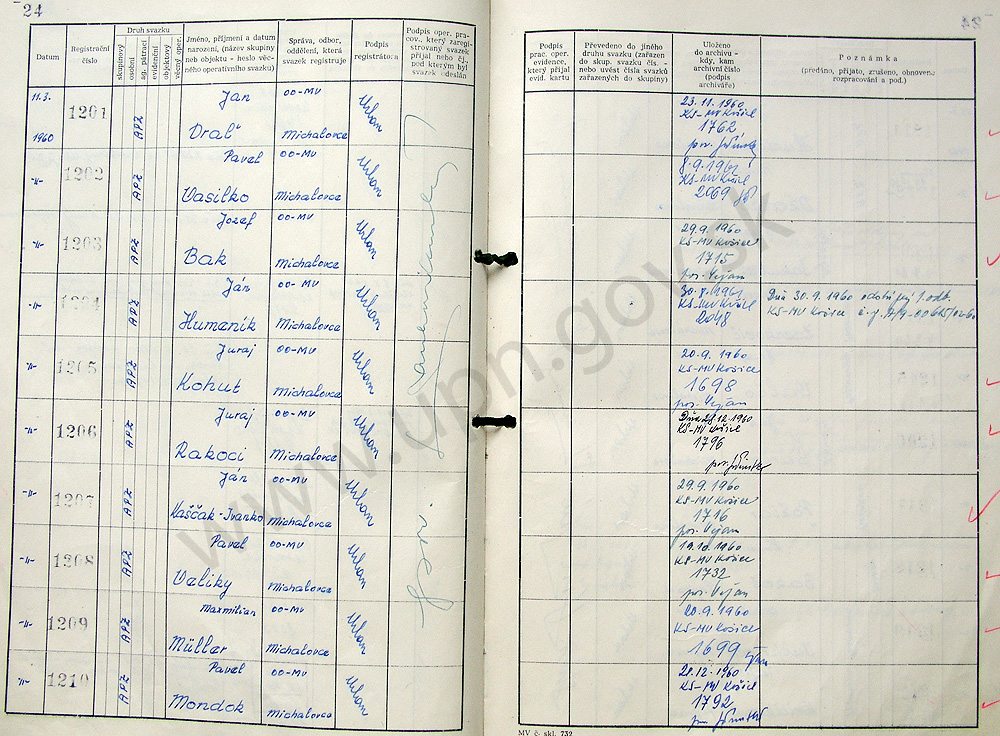 24
Datum
Registrační
číslo
Druh svazku
skupinový
osobní
ag. pátrací
evidenční
objektový
věcný oper.
Jméno, příjmení a datum
narození, (název skupiny
neb objektu - heslo věc-
ného operativního svazku)
Správa, odbor,
oddělení, která
svazek registruje
Podpis
registrátora:
Podpis oper. pra-
cov., který zaregi-
strovaný svazek
přijal nebo čj.,
pod kterým byl
svazek odeslán
11.3.
1960
1201
APZ
Jan
Dral
OO-MV
Michalovce
Urban
-"-
1202
APZ
Pavel
Vasilko
OO-MV
Michalovce
Urban
-"-
1203
APZ
Jozef
Bak
OO-MV
Michalovce
Urban
-"-
1204
APZ
Ján
Humeník
OO-MV
Michalovce
Urban
-"-
1205
APZ
Juraj
Kohut
OO-MV
Michalovce
Urban
-"-
1206
APZ
Juraj
Rakoci
OO-MV
Michalovce
Urban
-"-
1207
APZ
Ján
Kaščak-Ivanko
OO-MV
Michalovce
Urban
-"-
1208
APZ
Pavel
Valiky
OO-MV
Michalovce
Urban
-"-
1209
APZ
Maxmilian
Müller
OO-MV
Michalovce
Urban
-"-
1210
APZ
Pavel
Mondok
OO-MV
Michalovce
Urban
Podpis
prac. oper.
evidence,
který přijal
evid. kartu
Převedeno do jiného
druhu svazku (zařazen
do skup. svazku čís. -
nebo uvést čísla svazků
zařazených do skupiny)
Uloženo
do archivu -
kdy, kam
archivní číslo
(podpis
archiváře)
Poznámka
(předáno, přijato, zrušeno, obnoven.,
rozpracování a pod.)
23. 11. 1960
KS-MV Košice
1762
8.9.1961
KS-MV Košice
2069
29.9. 1960
KS-MV Košice
1715
por. Vejan
30.8.1961
KS-MV Košice
2048
Dňa 30. 9. 1960
KS-MV Košice
20.9. 1960
KS-MV Košice
1698
por. Vejan
Dňa 28.12.1960
KS-MV Košice
1796
29.9. 1960
KS-MV Košice
1716
por. Vejan
19.10.1960
KS-MV Košice
1732
por. Vejan
20.9. 1960
KS-MV Košice
1699
21.12.1960
KS-MV Košice
1792
MV č. skl. 732
www.upn.gov.sk